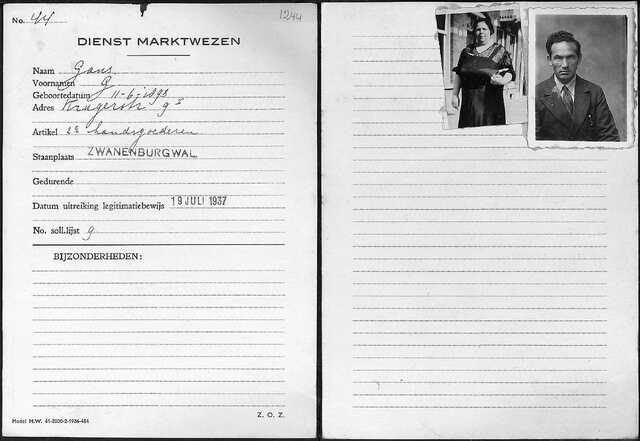 No. 44
1244
DIENST MARKTWEZEN
Naam Gans
Voornamen G
Geboortedatum 11-6-1893
Adres Krugerstr 9³
Artikel 2e handsgoederen
Staanplaats ZWANENBURGWAL
Gedurende
Datum uitreiking legitimatiebewijs 19 JULI 1937
No. soll.lijst 9
BIJZONDERHEDEN:
Z. O. Z.
Model M.W. 41-2000-2-1936-484